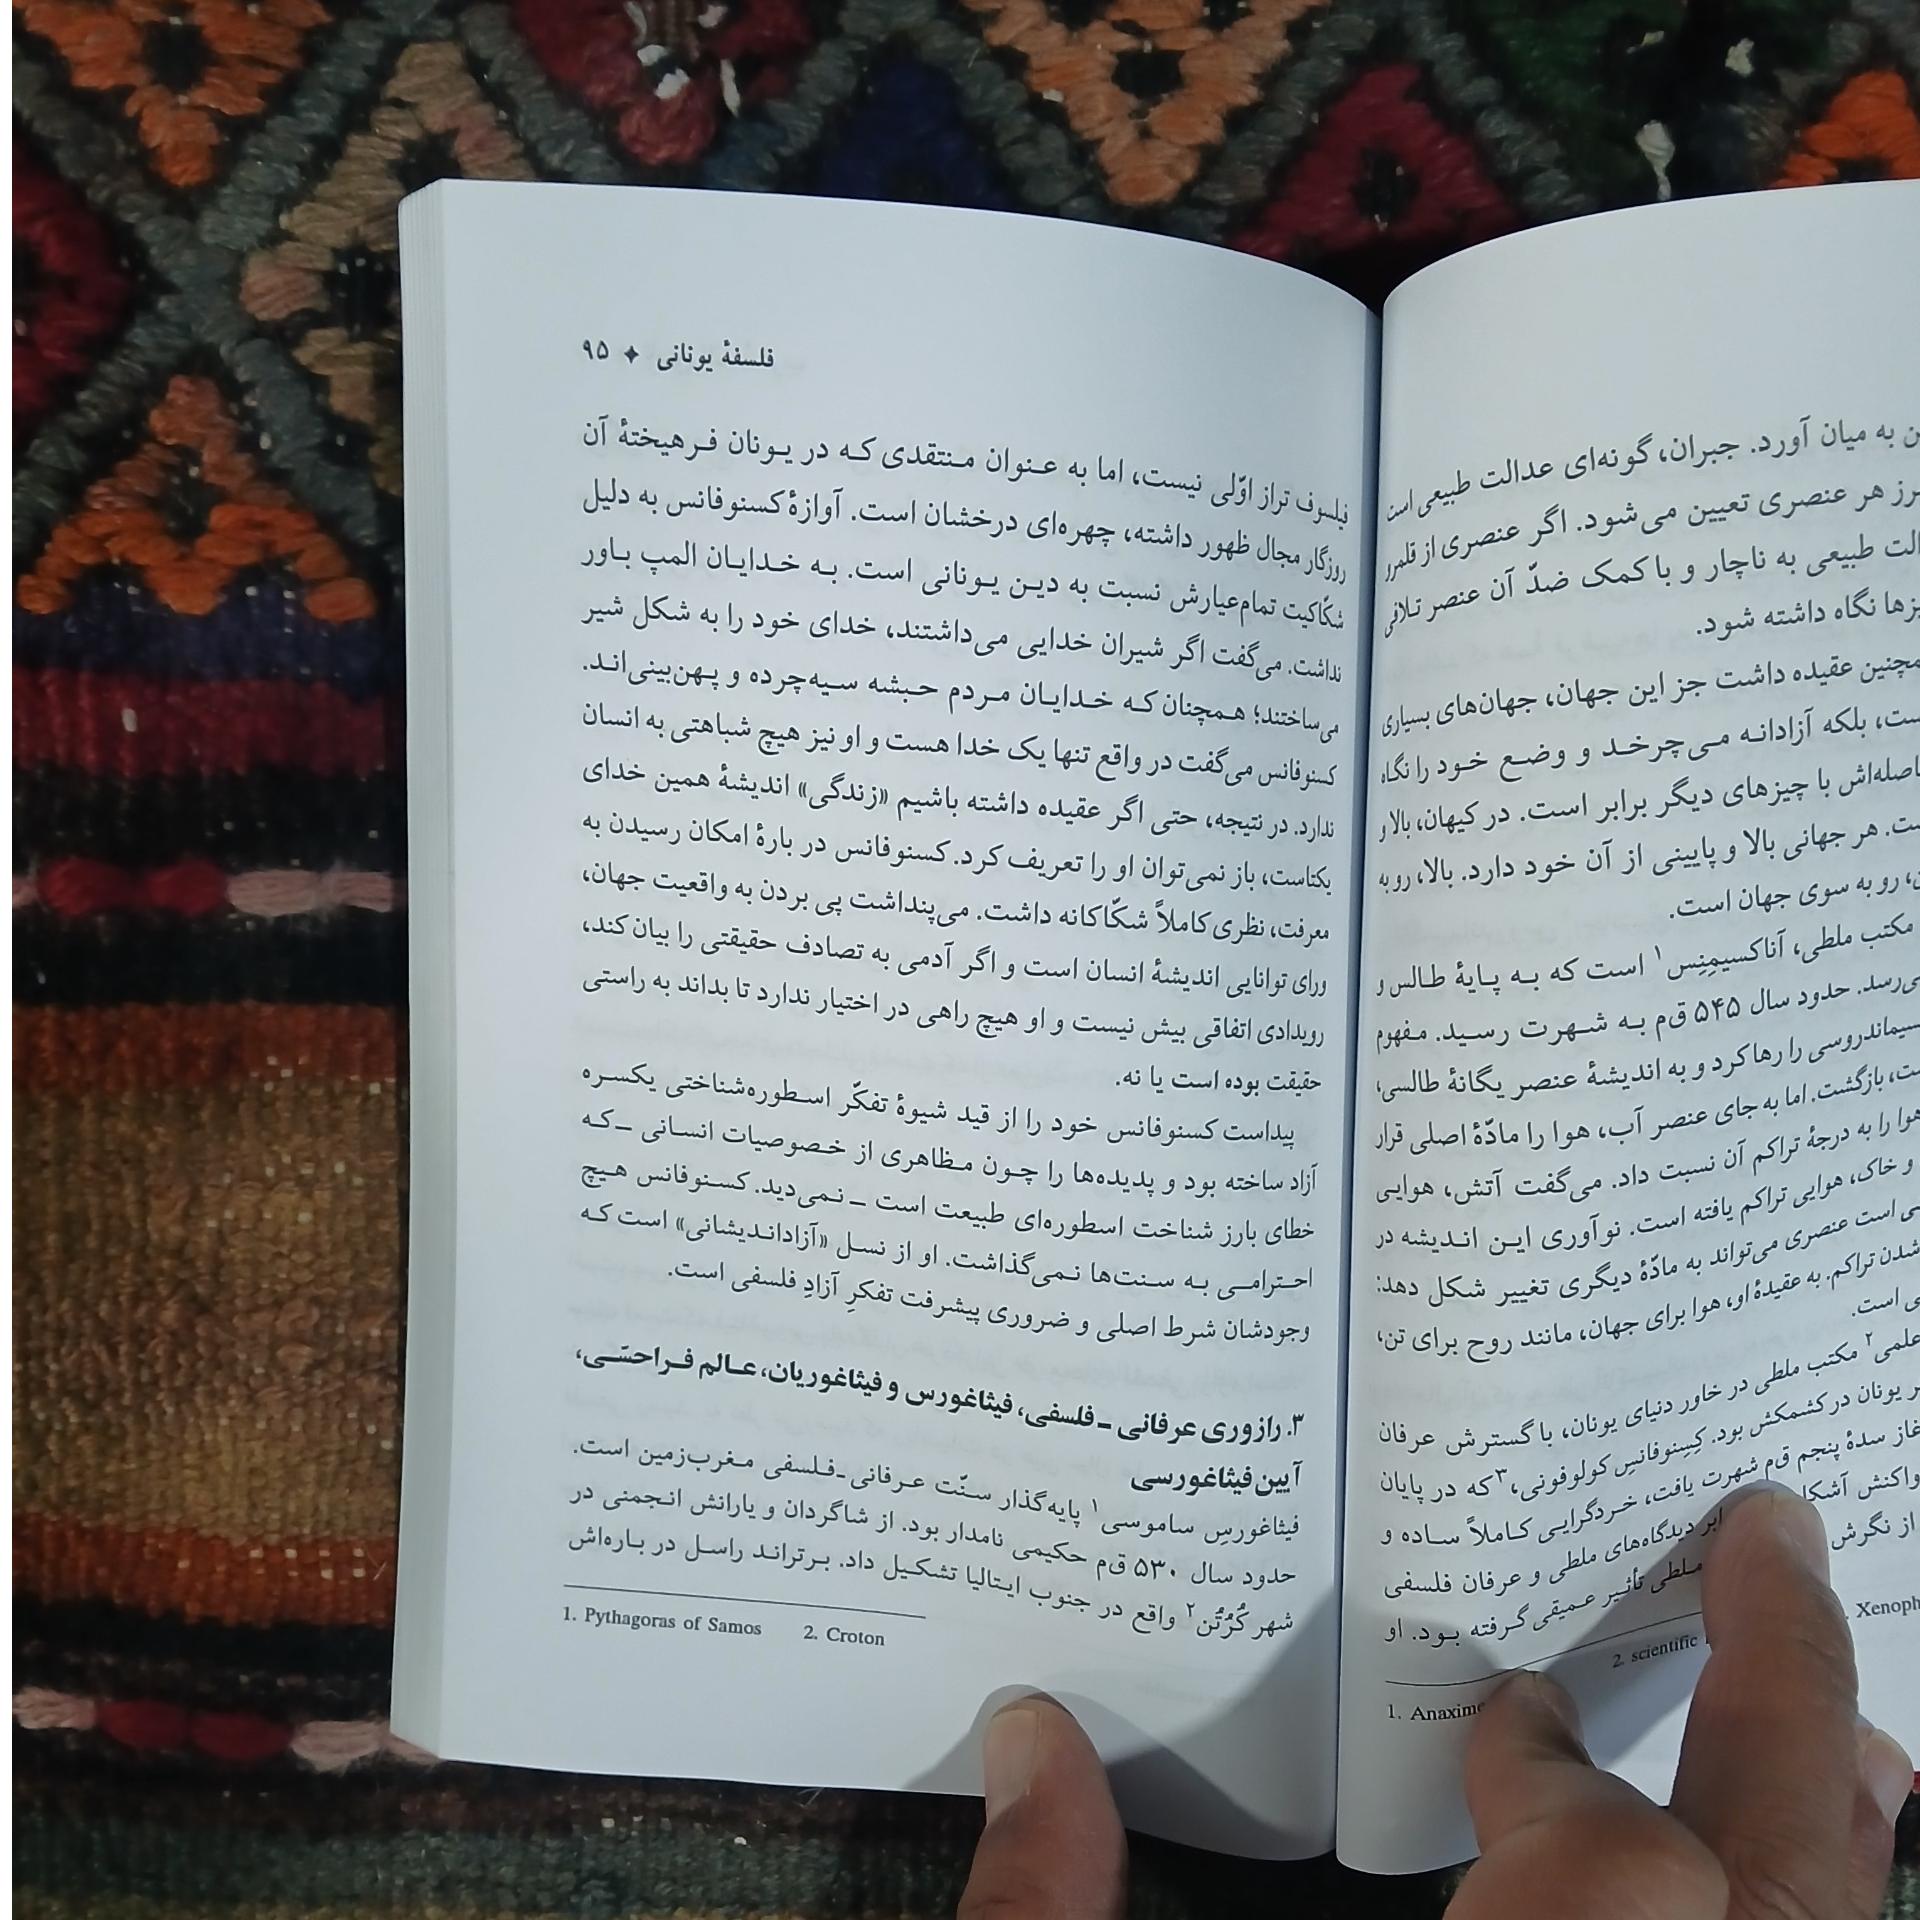 ن به میان آورد. جبران، گونه‌ای عدالت طبیعی است
رز هر عنصری تعیین می‌شود. اگر عنصری از قلمرو
لت طبیعی به ناچار و با کمک ضدّ آن عنصر تلافی
یزها نگاه داشته شود.
مچنین عقیده داشت جز این جهان، جهان‌های بسیاری
ست، بلکه آزادانه می‌چرخد و وضع خود را نگاه
اصله‌اش با چیزهای دیگر برابر است. در کیهان، بالا و
ست. هر جهانی بالا و پایینی از آن خود دارد. بالا، رو به
ن، رو به سوی جهان است.
مکتب ملطی، آناکسیمِنِس۱ است که به پایهٔ طالس و
ی‌رسد. حدود سال ۵۴۵ ق‌م به شهرت رسید. مفهوم
سیماندروسی را رها کرد و به اندیشهٔ عنصر یگانهٔ طالسی،
ست، بازگشت. اما به جای عنصر آب، هوا را مادّهٔ اصلی قرار
هوا را به درجهٔ تراکم آن نسبت داد. می‌گفت آتش، هوایی
و خاک، هوایی تراکم یافته است. نوآوری این اندیشه در
ی است عنصری می‌تواند به مادّهٔ دیگری تغییر شکل دهد:
شدن تراکم. به عقیدهٔ او، هوا برای جهان، مانند روح برای تن،
ی است.
علمی۲ مکتب ملطی در خاور دنیای یونان، با گسترش عرفان
ر یونان در کشمکش بود. کِسِنوفانسِ کولوفونی،۳ که در پایان
غاز سدهٔ پنجم ق‌م شهرت یافت، خردگرایی کاملاً ساده و
واکنش آشکا ابر دیدگاه‌های ملطی و عرفان فلسفی
از نگرش ملطی تأثیر عمیقی گرفته بود. او
1. Anaxime 2. scientific Xenoph
فلسفهٔ یونانی ✦ ۹۵
فیلسوف تراز اوّلی نیست، اما به عنوان منتقدی که در یونان فرهیختهٔ آن
روزگار مجال ظهور داشته، چهره‌ای درخشان است. آوازهٔ کسنوفانس به دلیل
شکّاکیت تمام‌عیارش نسبت به دین یونانی است. به خدایان المپ باور
نداشت. می‌گفت اگر شیران خدایی می‌داشتند، خدای خود را به شکل شیر
می‌ساختند؛ همچنان که خدایان مردم حبشه سیه‌چرده و پهن‌بینی‌اند.
کسنوفانس می‌گفت در واقع تنها یک خدا هست و او نیز هیچ شباهتی به انسان
ندارد. در نتیجه، حتی اگر عقیده داشته باشیم «زندگی» اندیشهٔ همین خدای
یکتاست، باز نمی‌توان او را تعریف کرد. کسنوفانس در بارهٔ امکان رسیدن به
معرفت، نظری کاملاً شکّاکانه داشت. می‌پنداشت پی بردن به واقعیت جهان،
ورای توانایی اندیشهٔ انسان است و اگر آدمی به تصادف حقیقتی را بیان کند،
رویدادی اتفاقی بیش نیست و او هیچ راهی در اختیار ندارد تا بداند به راستی
حقیقت بوده است یا نه.
پیداست کسنوفانس خود را از قید شیوهٔ تفکّر اسطوره‌شناختی یکسره
آزاد ساخته بود و پدیده‌ها را چون مظاهری از خصوصیات انسانی ــ که
خطای بارز شناخت اسطوره‌ای طبیعت است ــ نمی‌دید. کسنوفانس هیچ
احترامی به سنت‌ها نمی‌گذاشت. او از نسل «آزاداندیشانی» است که
وجودشان شرط اصلی و ضروری پیشرفت تفکرِ آزادِ فلسفی است.
۳. رازوری عرفانی ـ فلسفی، فیثاغورس و فیثاغوریان، عالم فراحسّی،
آیین فیثاغورسی
فیثاغورسِ ساموسی۱ پایه‌گذار سنّت عرفانی-فلسفی مغرب‌زمین است.
حدود سال ۵۳۰ ق‌م حکیمی نامدار بود. از شاگردان و یارانش انجمنی در
شهر کُرُتُن۲ واقع در جنوب ایتالیا تشکیل داد. برتراند راسل در باره‌اش
1. Pythagoras of Samos 2. Croton